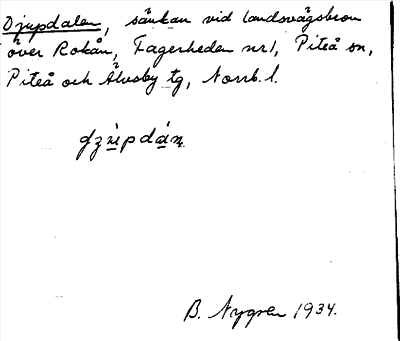 Djupdalen, sänkan vid landsvägsbron
över Rokån, Fagerheden nr 1, Piteå sn,
Piteå och Älvsby tg, Norrb. l.
B. Nygren 1934.